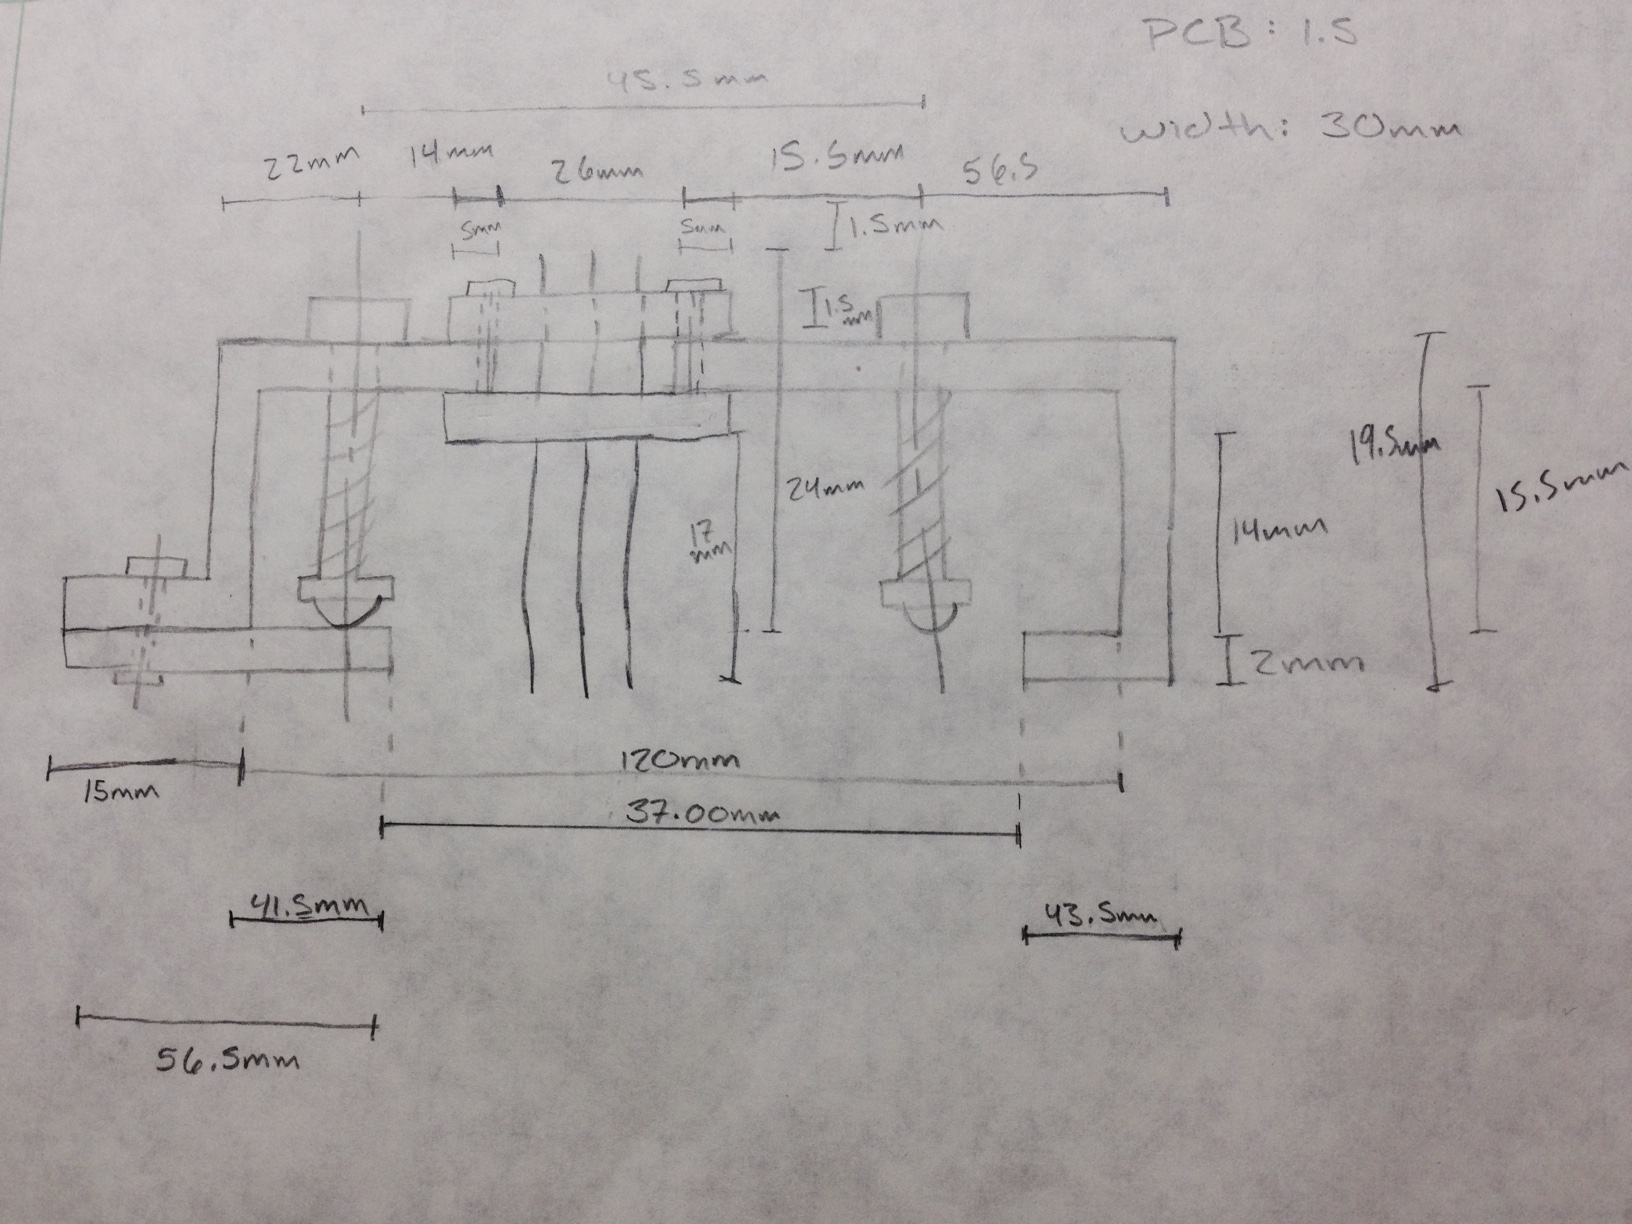 PCB: 1.5
45.5mm
width: 30mm
22mm
14mm
26mm
15.5mm
56.5
5mm
5mm
1.5mm
1.5
mm
19.5mm
24mm
15.5mm
17
mm
14mm
2mm
120mm
15mm
37.00mm
41.5mm
43.5mm
56.5mm